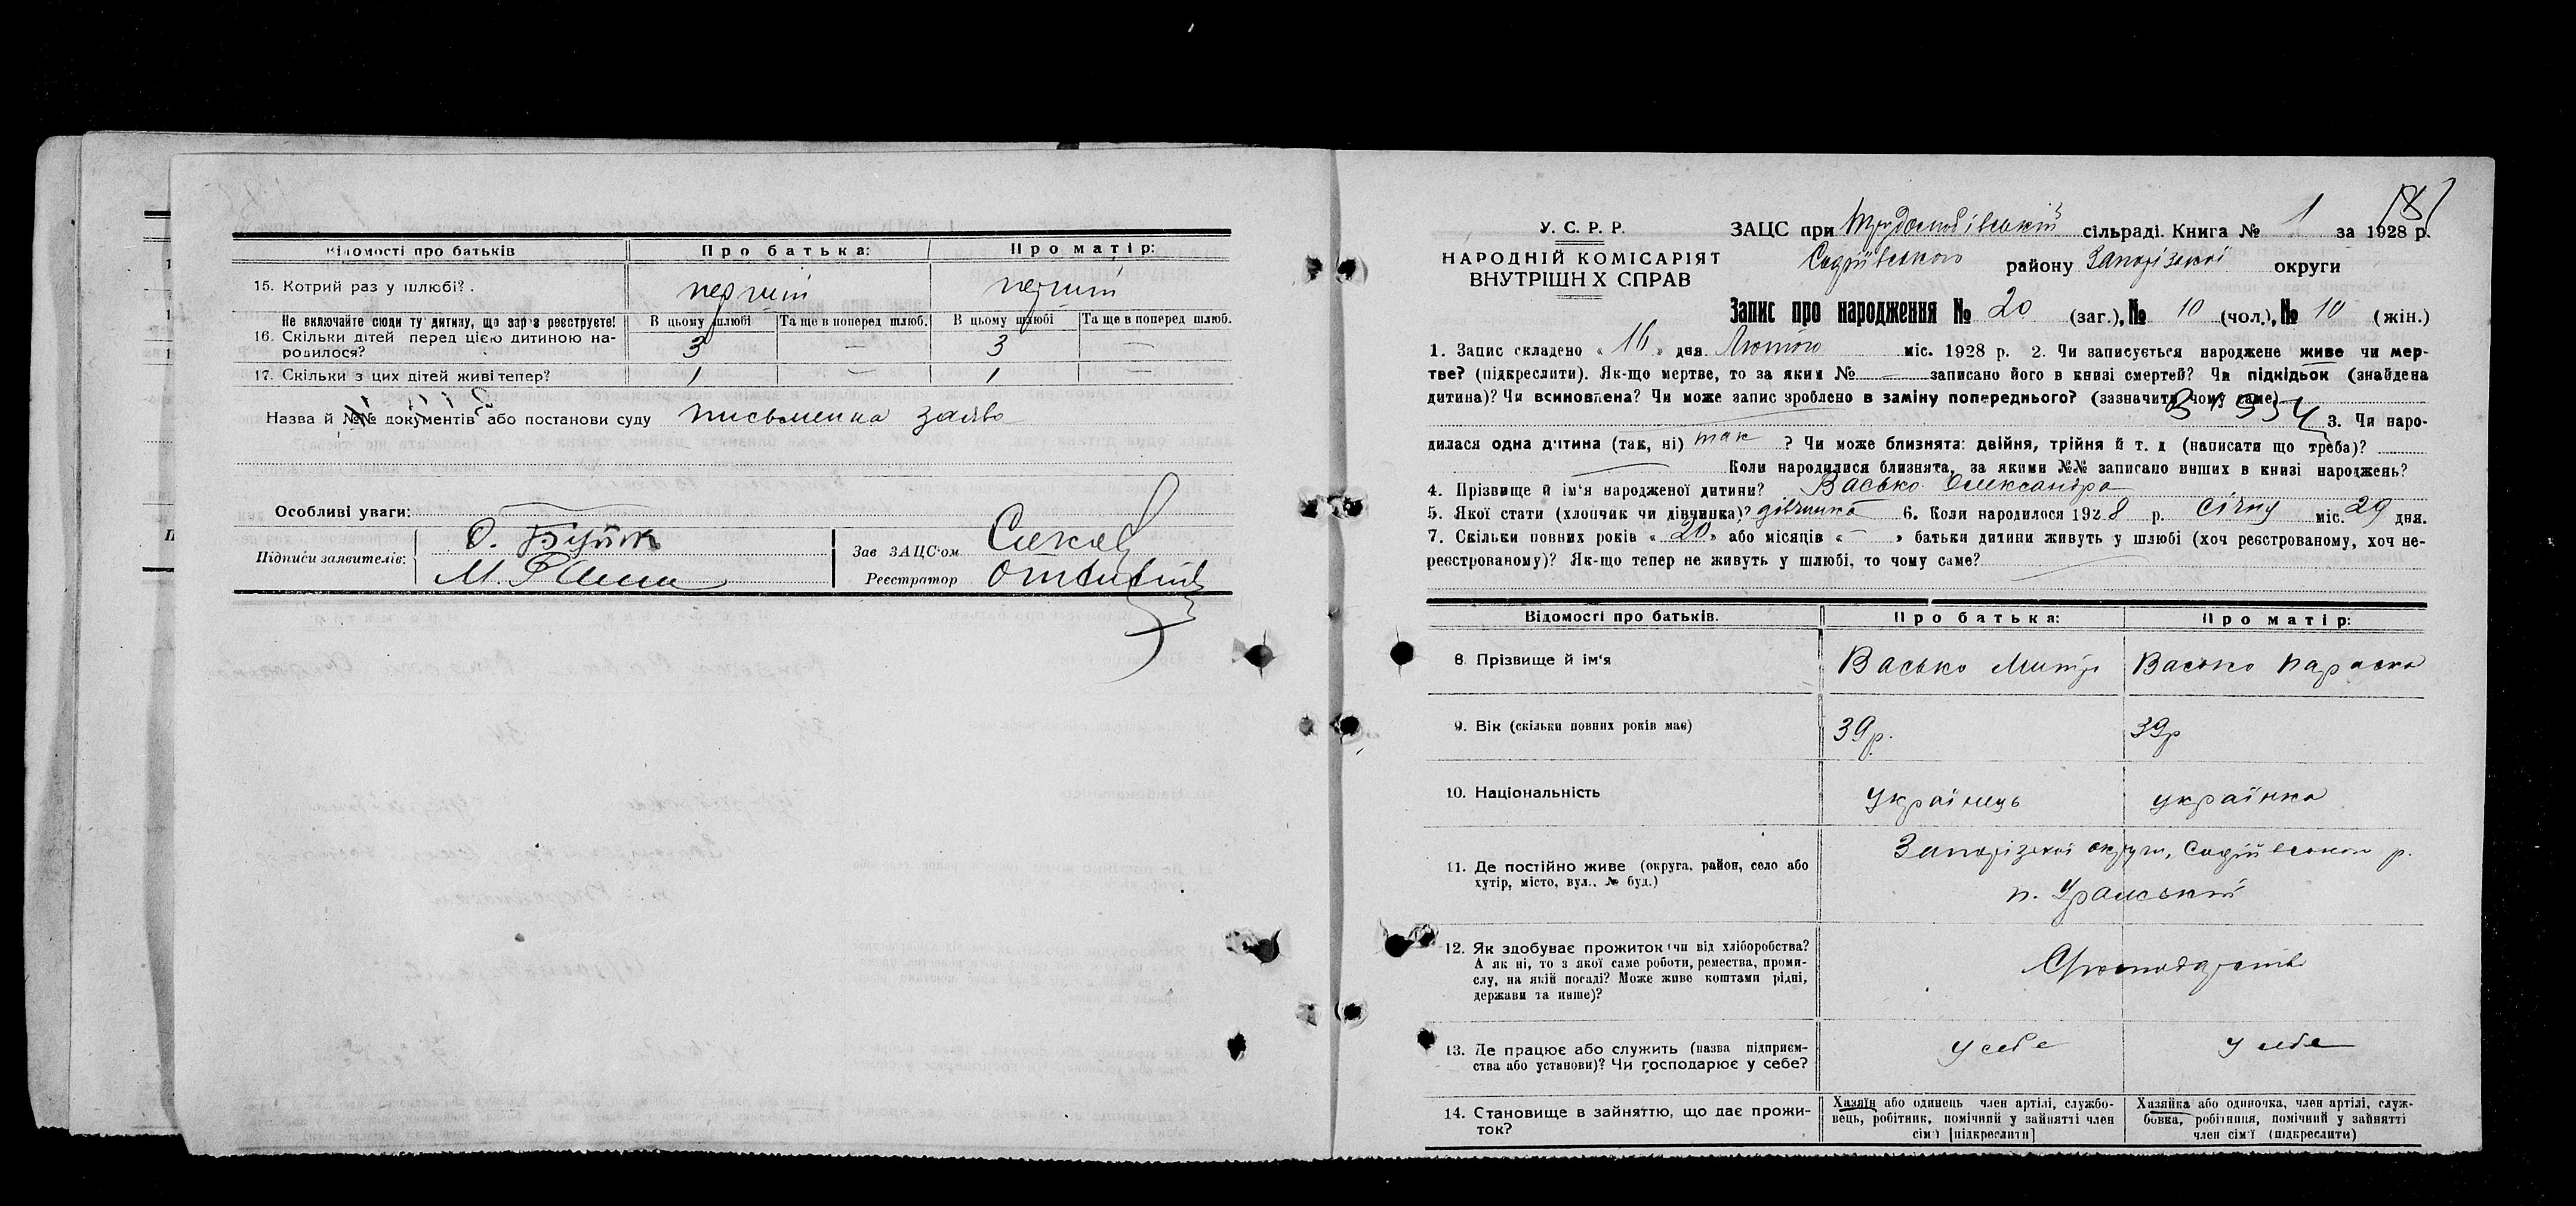 Відомості про батьків Про батька: Про матір:
15. Котрий раз у шлюбі? . перший перший
Не включайте сюди ту дитину, що зараз реєструєте! В цьому шлюбі Та ще в поперед шлюб. В цьому шлюбі Та ще в поперед шлюб.
16. Скільки дітей перед цією дитиною на- 3 — 3 —
родилося?
17. Скільки з цих дітей живі тепер? 1 — 1 —
Назва й №№ документів або постанови суду письменна заява
Особливі уваги:
Підписи заявителів: О. Буйок Зав ЗАЦС'ом
Реєстратор
181
У. С. Р. Р.
НАРОДНІЙ КОМІСАРІЯТ
ВНУТРІШН Х СПРАВ
ЗАЦС при сільраді. Книга № 1 за 1928 р.
Софіївського району Запорізької округи
Запис про народження № 20 (заг.), № 10 (чол.), № 10 (жін.)
1. Запис складено « 16 » дня Лютого міс. 1928 р. 2. Чи записується народжене живе чи мер-
тве? (підкреслити). Як-що мертве, то за яким № — записано його в книзі смертей? Чи підкідьок (знайдена
дитина)? Чи всиновлена? Чи може запис зроблено в заміну попереднього? (зазначити чому саме)
3. Чи наро-
дилася одна дитина (так, ні) так ? Чи може близнята: двійня, трійня й т. д (написати що треба)?
Коли народилися близнята, за якими №№ записано инших в книзі народжень?
4. Прізвище й ім'я народженої дитини? Васько Олександра
5. Якої стати (хлопчик чи дівчинка)? дівчинка 6. Коли народилося 1928 р. Січня міс. 29 дня.
7. Скільки повних років « 20 » або місяців « — » батьки дитини живуть у шлюбі (хоч реєстрованому, хоч не-
реєстрованому)? Як-що тепер не живуть у шлюбі, то чому саме?
Відомості про батьків. Про батька: Про матір:
8. Прізвище й ім'я Васько Митр Васько Параска
9. Вік (скільки повних років має) 39 р. 39 р
10. Національність Українець українка
11. Де постійно живе (округа, район, село або Запорізької округи, Софіївського р.
хутір, місто, вул., № буд.)
12. Як здобуває прожиток чи від хліборобства?
А як ні, то з якої саме роботи, ремества, проми-
слу, на якій посаді? Може живе коштами рідні,
держави та инше)?
13. Де працює або служить (назва підприєм- у себе у себе
ства або установи)? Чи господарює у себе?
14. Становище в зайняттю, що дає прожи-
ток?
Хазяїн або одинець член артілі, службо-
вець, робітник, помічний у зайнятті член
сім'ї [підкреслити]
Хазяйка або одиночка, член артілі, служ-
бовка, робітниця, помічний у зайнятті
член сім'ї (підкреслити)